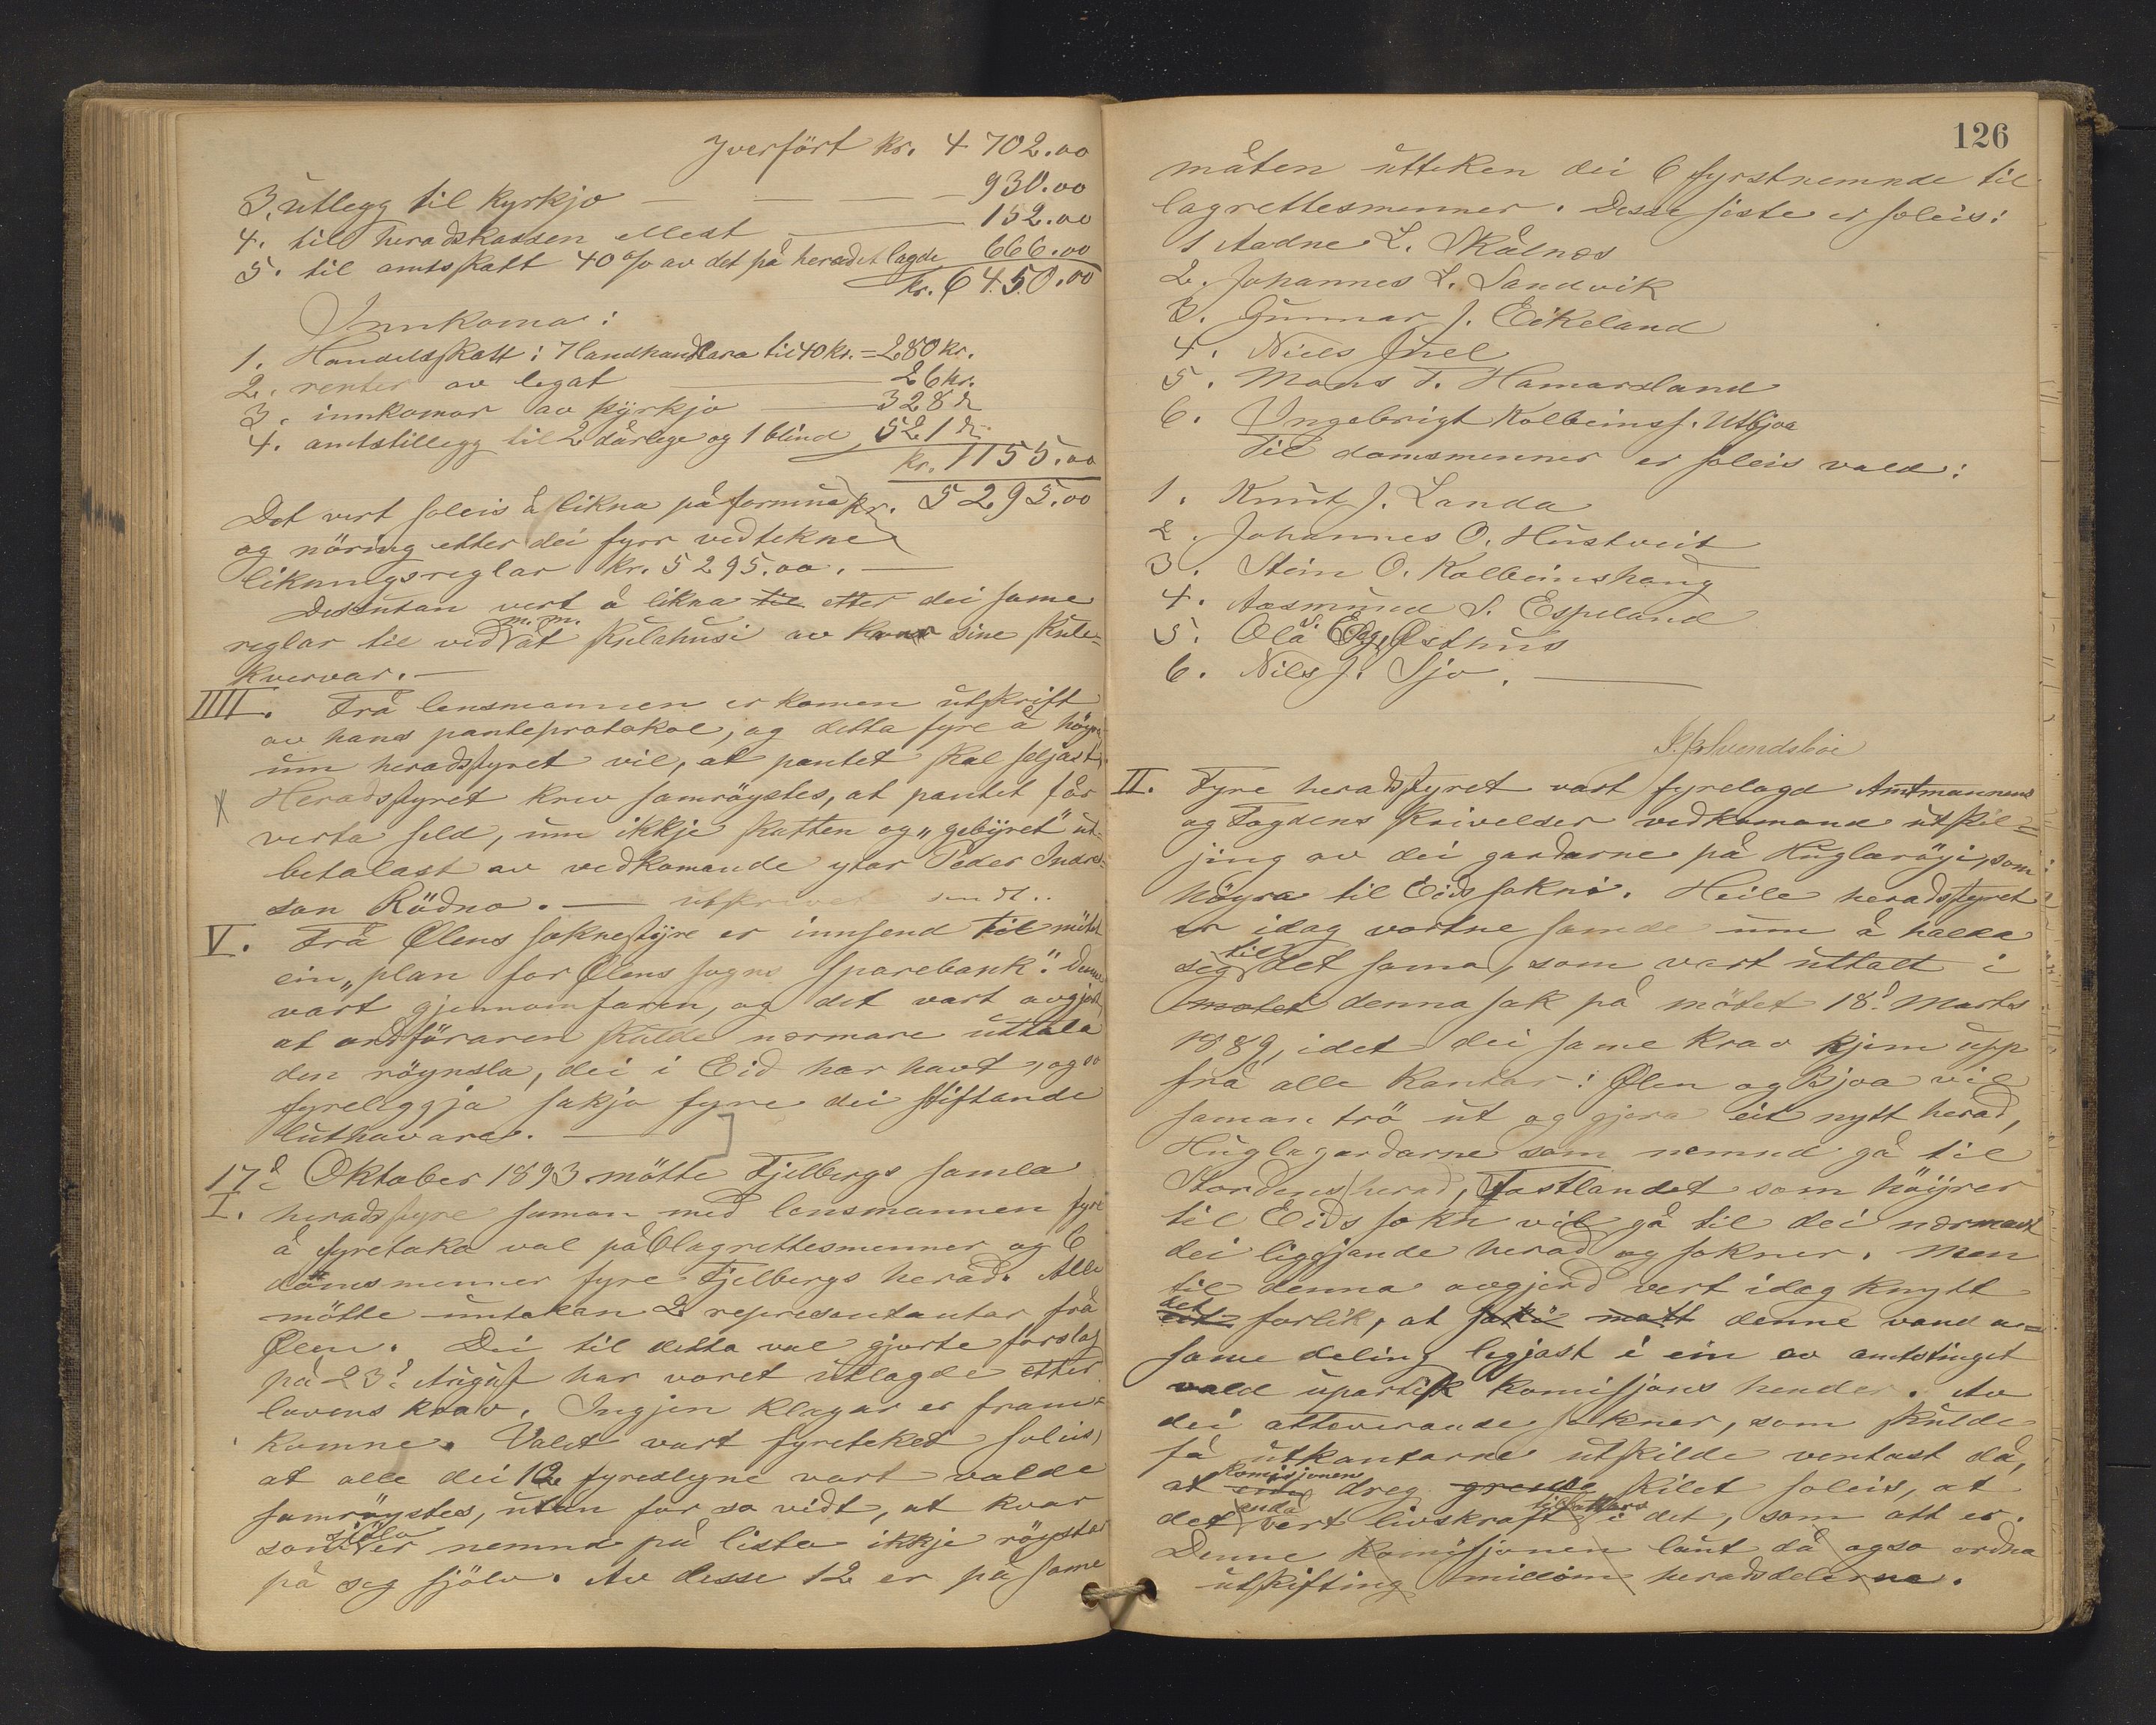 Yverfört kr. 4 702.00
3. utlegg til kyrkjo — — — 930.00
4. till heradskassen ellest — 152.00
5. til amtsskatt 40 % av det på heradet lagde 666.00
kr. 6450.00
Innkoma:
1. Handelsskatt: 7 landhandlara til 40 kr. = 280 kr.
2. renter av legat — 26 kr.
3. innkomor av kyrkjo — 328 "
4. amtstillegg til 2 dårlege og 1 blind 521 "
kr. 1155.00
Det vert soleis å likna på formue kr. 5295.00
og nöring etter dei fyrr vedtekne
likningsreglar kr. 5295.00. —
Dessutan vert å likna til etter dei same
m. m.
reglar til ved åt skulahusi av kvar sine skule-
krervar. —
IIII. Frå lensmannen er komen utskrift
av hans panteprotokol, og detta fyre å höyra
um heradsstyret vil, at pantet skal seljast.
Heradsstyret krev samröystes, at pantet får
verta seld, um ikkje skatten og "gebyret" ut-
betalast av vedkomande ytar Peder Indre-
son Rödno. — utskrivet sendt..
V. Frå Ølens soknestyre er innsend til mötet
ein "plan for Ølens sogns sparebank". Denne
vart gjennomfaren, og det vart avgjort,
at ordföraren skulde nærmare uttala
den röynsla, dei i Eid har havt, og so
fyreleggja sakjo fyre dei stiftande
luthavarar. —
17d Oktober 1893 mötte Fjelbergs samla
I. heradsstyre saman med lensmannen fyre
å fyretaka val på 6 lagrettesmenner og 6
domsmenner fyre Fjelbergs herad. Alle
mötte untakan 2 representantar frå
Ølen. Dei til detta val gjorte forslag
på 23d August har voret utlagde etter
lovens krav. Ingjen klagar er fram-
komne. Valet vart fyreteket soleis,
at alle dei 12 fyreslegne vart valde
samröystes, utan for so vidt, at kvar
sjölv
som er nemnd på lista ikkje röystar
på seg sjölv. Av desse 12 er på same
126
måten utteken dei 6 fyrstnemnde til
lagrettesmenner. Desse siste er soleis:
1 Aadne L. Skålnes
2. Johannes L. Sandvik
3. Gunnar J. Eikeland
4. Niels Juel
5. Mons T. Hamarsland
6. Ingebrigt Kolbeinss. Utbjoa
Til domsmenner er soleis vald:
1. Knut J. Landa
2. Johannes O. Hustveit
3. Stein O. Kolbeinshaug
4. Aasmund S. Espeland
5. Ola Østhus
6. Nils J. Sjo. —
Svendsböe
II. Fyre heradsstyret vart fyrelagd Amtmannens
og Fogdens skrivelser vedkomand utskil-
jing av dei gardarne på Huglaröyi, som
höyra til Eids sokni. Heile heradsstyret
er idag vortne samde um å halda
til
seg det sama, som vart uttalt i
motet denna sak på mötet 18d Marts
1889, idet dei same krav kjem upp
frå alle kantar: Ølen og Bjoa vil
saman trö ut og gjera eit nytt herad,
Huglagardarne som nemnd gå til
Stordens herad, Fastlandet som höyrer
til Eids sokn vil gå til dei nærmast
dei liggjande herad og sokner. Men
til denna avgjerd vert idag knytt
det
eit forlik, at sakö matt denne vand a-
same deling legjast i ein av amtstinget
vald upartisk komisjons hender. Av
dei attverande sokner, som skulde
få utkantarne utskilde ventast då,
komisjonen
at ein dreg grensa skilet soleis, at
endå til fattars
det vert livskraft i det, som att er.
Denne komisjonen laut då ogso ordna
utskifting millom heradsdelarne.